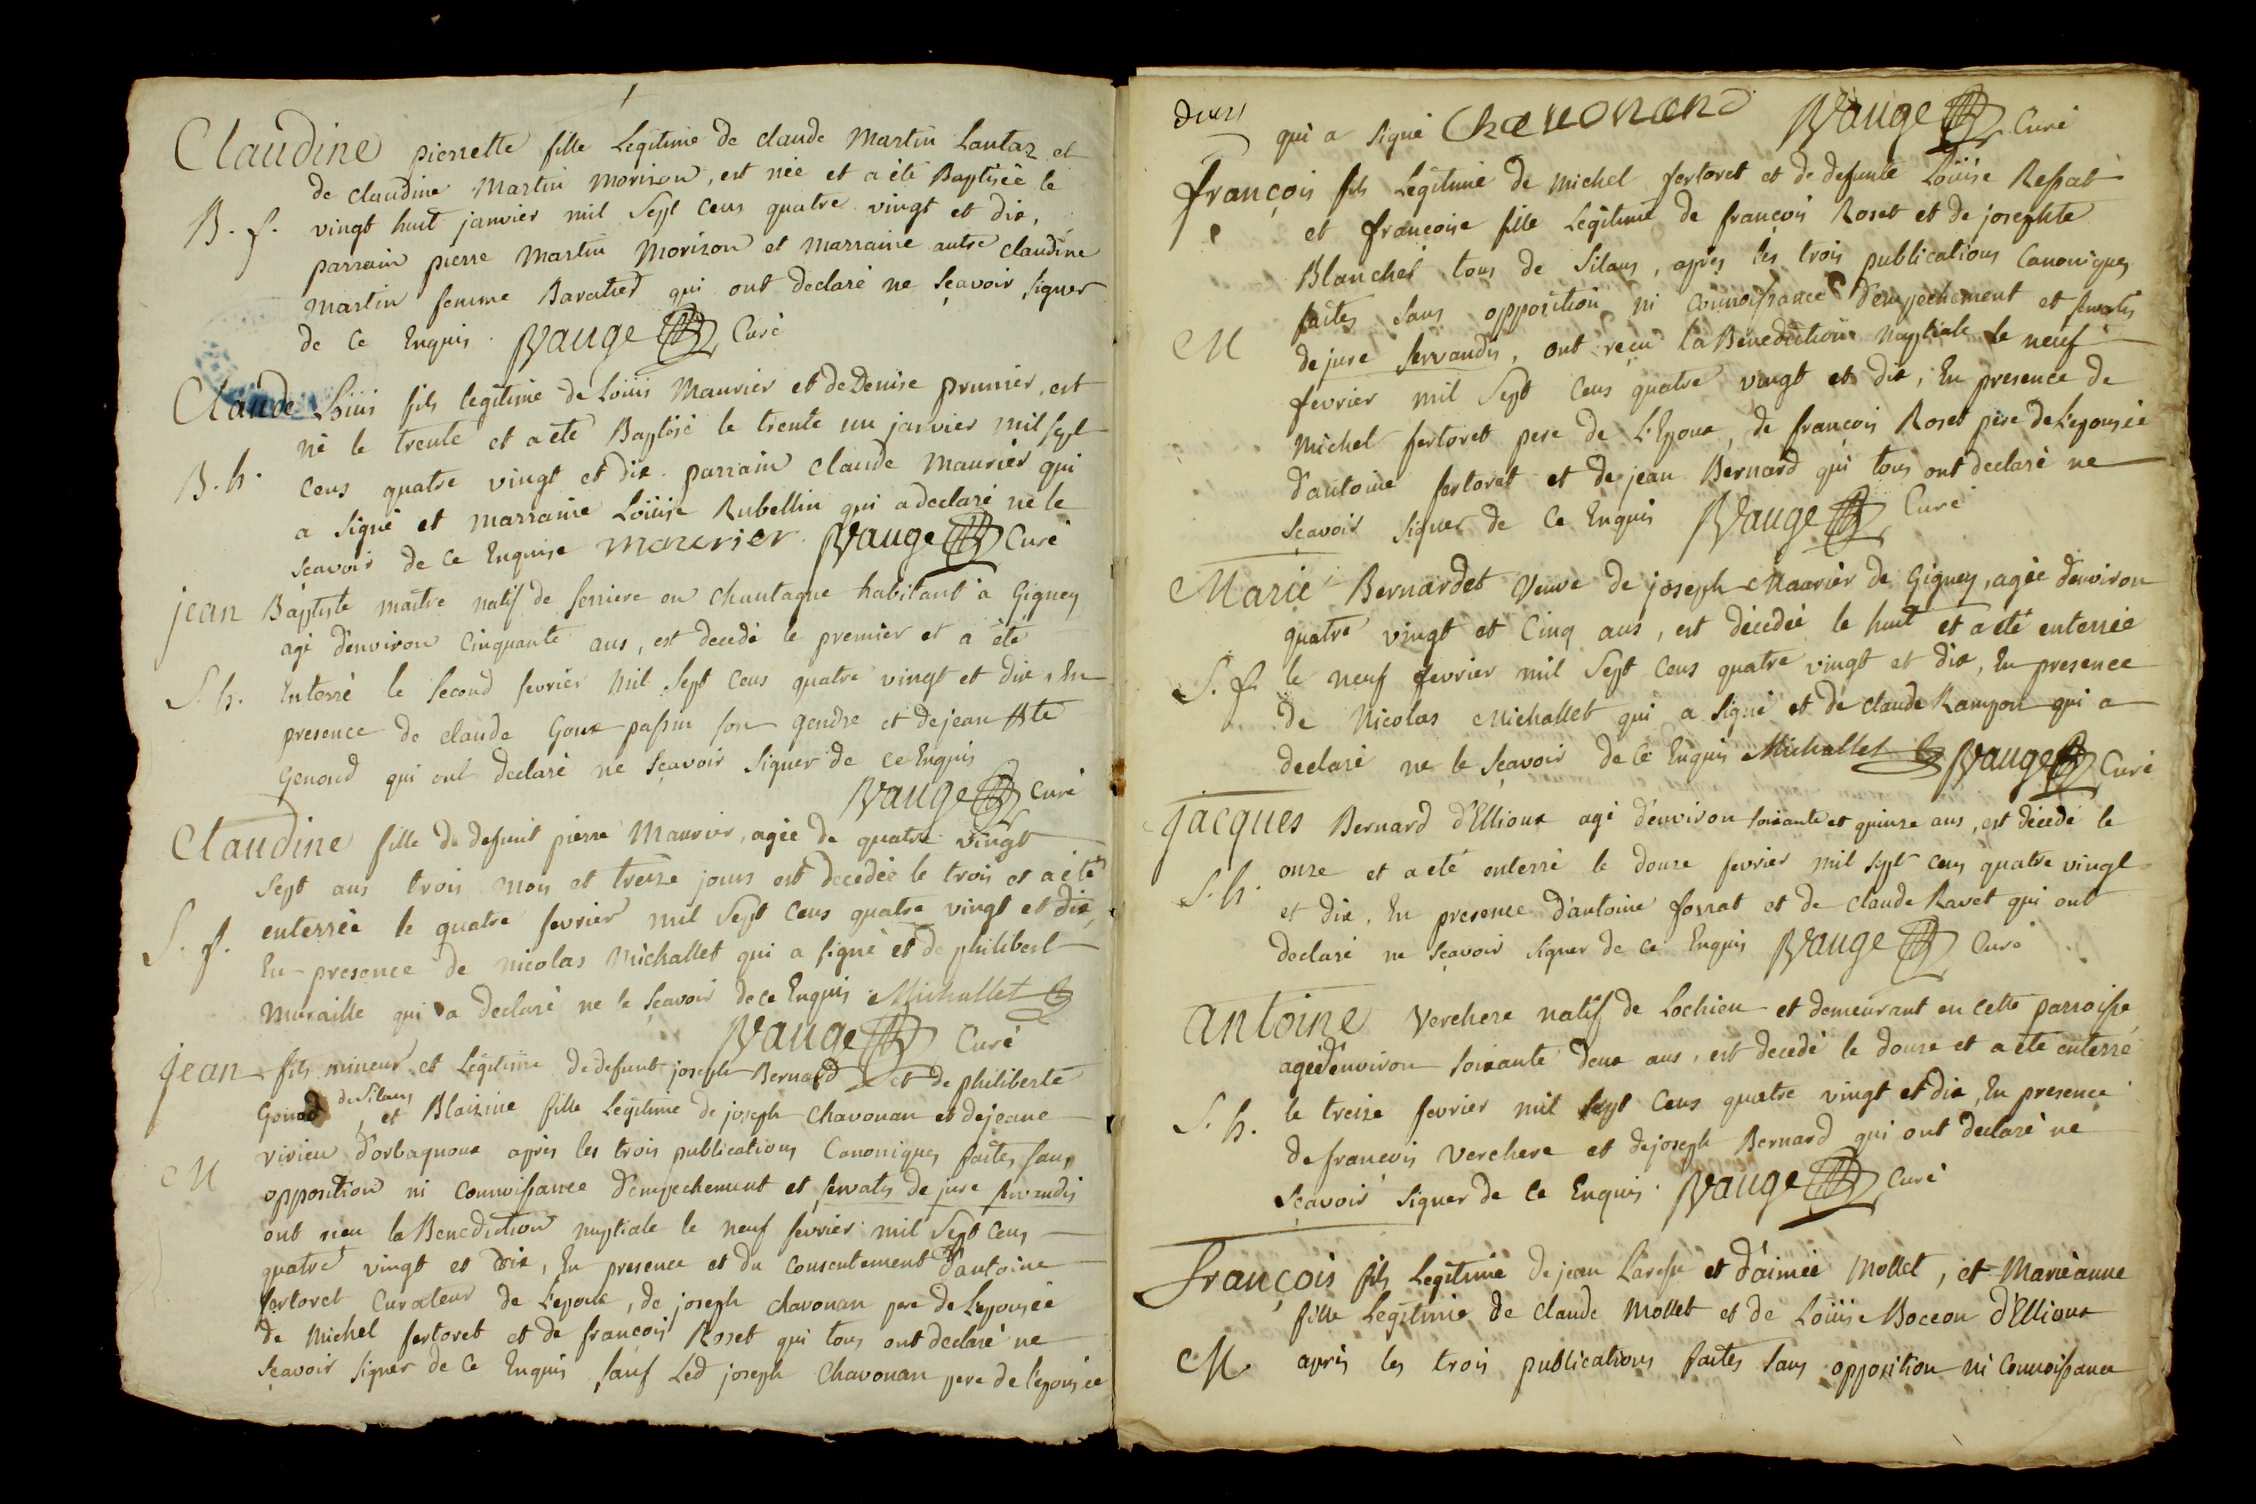 Claudine pierrette fille Legitime de claude Martin Lantaz et
de claudine Martin Morizon, est née et a été Baptisée le
B. f. vingt huit janvier mil Sept Cens quatre vingt et dix,
parrain pierre Martin Morizon et Marraine autre claudine
Martin femme Baratier qui ont declaré ne Sçavoir signer
de Ce Enquis. Vauge Curé
Claude Loüis fils legitime de Loüis Maurier et de Denise prunier, est
né le trente et a eté Baptisé le trente un janvier mil sept
B. h. Cens quatre vingt et dix. parrain claude Maurier qui
a signé et marraine Loüise Rubellin qui a declaré ne le
Sçavoir de Ce Enquise maurier. Vauge Curé
jean Baptiste maitre natif de ferriere en Chautagne habitant a Gigney
agé d'environ Cinquante ans, est decedé le premier et a été
S. h. Enterré le Second fevrier Mil Sept Cens quatre vingt et dix, En
presence de claude Goux passin son gendre et de jean Bte
Genoud qui ont declaré ne Sçavoir signer de Ce Enquis
Vauge Curé
Claudine fille de defunt pierre Maurier, agée de quatre vingt
Sept ans trois mois et treize jours est decedée le trois et a été
S. f. enterrée le quatre fevrier mil Sept Cens quatre vingt et dix,
En presence de nicolas Michallet qui a signé et de philibert
Muraille qui a declaré ne le Sçavoir de ce Enquis Michallet
Vauge Curé
jean fils mineur et Legitime de defunt joseph Bernard et de philiberte
de Silans
et Blaizine fille Legitime de joseph Chavonan et de jeane
virieu d'orbagnoux après les trois publications Canoniques faites sans
M opposition ni Connoissance d'empechement et servatis de jure servandis
ont reçu la Benediction nuptiale le neuf fevrier mil Sept Cens
quatre vingt et dix, En presence et du Consentement d'antoine
fertoret Curateur de L'epoux, de joseph chavonan pere de L'epousée
de Michel fertoret et de françois Roset qui tous ont declaré ne
Sçavoir signer de Ce Enquis sauf Led joseph Chavonan pere de l'epousée
qui a signé Chavonand Vauge Curé
françois fils Legitime de Michel fertoret et de defunte Loüise Ressat
et françoise fille Legitime de françois Roset et de josephte
Blanchet tous de Silans, après les trois publications Canoniques
faites sans opposition ni Connoissance d'empechement et servatis
M de jure servandis, ont reçu la Benediction nuptiale le neuf
fevrier mil Sept Cens quatre vingt et dix, En presence de
Michel fertoret pere de L'Epoux, de françois Roset pere de L'epousée
d'antoine fertoret et de jean Bernard qui tous ont declaré ne
Sçavoir signer de Ce Enquis Vauge Curé
Marie Bernardet Veuve de joseph Maurier de Gigney, agée d'environ
quatre vingt et Cinq ans, est décedée le huit et a eté enterrée
S. f. le neuf fevrier mil Sept Cens quatre vingt et dix, En presence
de Nicolas Michallet qui a signé et de claude Rampon qui a
declaré ne le Sçavoir de Ce Enquis Michallet Vauge Curé
jacques Bernard d'Ellioux agé d'environ soixante et quinze ans, est décedé le
S. h. onze et a eté enterré le douze fevrier mil sept Cens quatre vingt
et dix, En presence d'antoine forrat et de claude Ravet qui ont
declaré ne Sçavoir signer de Ce Enquis Vauge Curé
antoine Verchere natif de Lochieu et demeurant en cette parroisse
agé d'environ soixante deux ans, est decedé le douze et a eté enterré
S. h. le treize fevrier mil Sept Cens quatre vingt et dix, En presence
de françois Verchere et de joseph Bernard qui ont declaré ne
Sçavoir signer de Ce Enquis. Vauge Curé
françois fils Legitime de jean Laresse et d'aimée Mollet, et Marieanne
fille Legitime de claude Mollet et de Loüise Boccon d'Ellioux
M après les trois publications faites sans opposition ni Connoissance